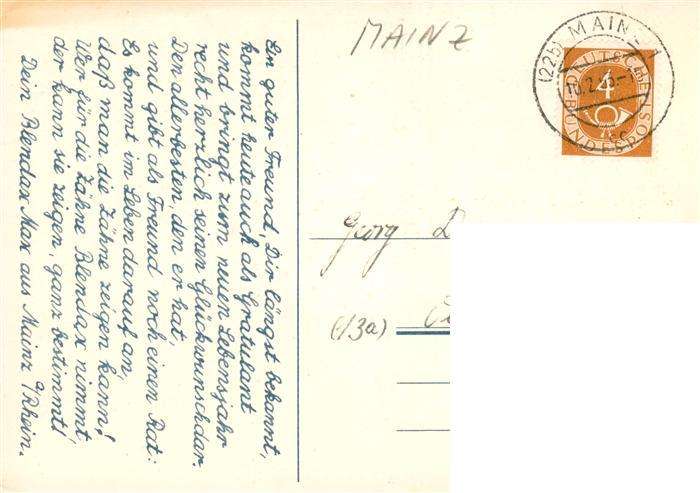 Ein guter Freund, Dir längst bekannt,
kommt heute auch als Gratulant
und bringt zum neuen Lebensjahr
recht herzlich seinen Glückwunsch dar.
Den allerbesten, den er hat,
und gibt als Freund noch einen Rat:
Es kommt im Leben darauf an,
daß man die Zähne zeigen kann!
Wer für die Zähne Blendax nimmt,
der kann sie zeigen, ganz bestimmt!
Dein Blendax Max aus Mainz a/Rhein.
MAINZ
(22b) MAINZ
10.2.
DEUTSCHE
4
BUNDESPOST
Georg
(13a)